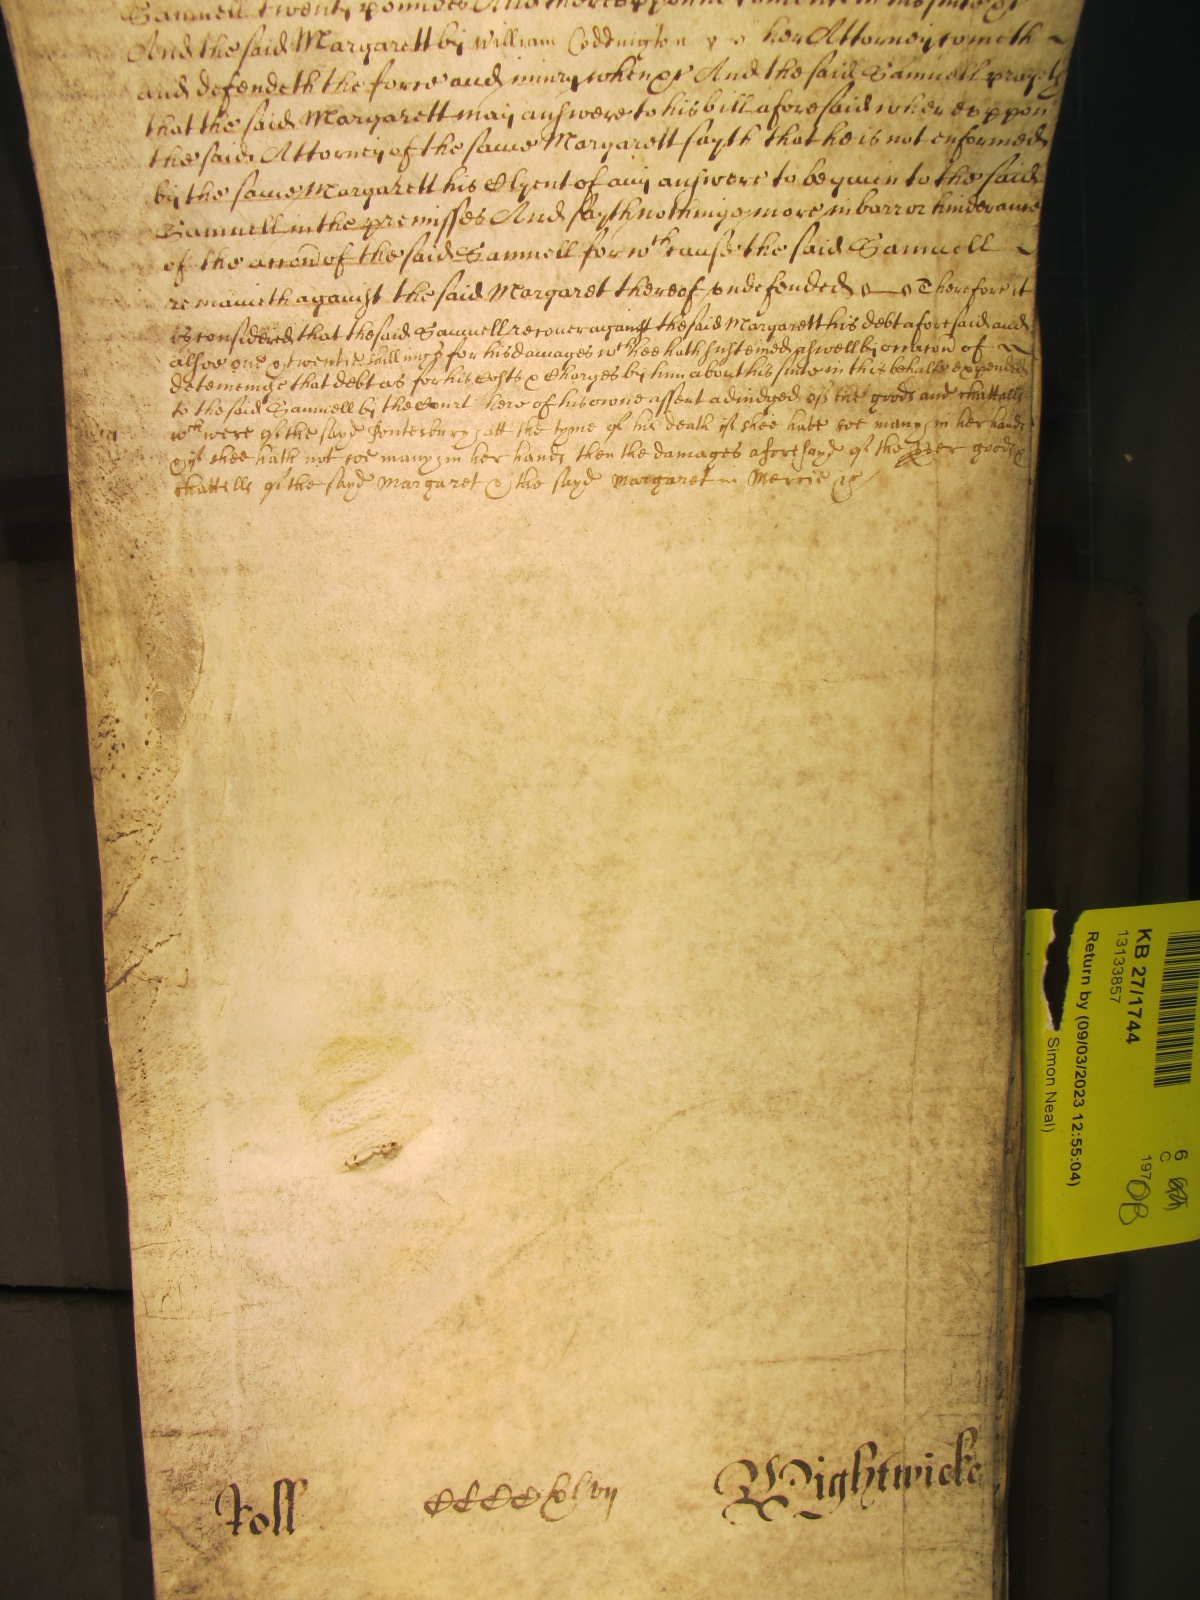 Samuell twenty poundes And thereuppon
And the said Margarett by William Coddington her Attorney cometh
and defendeth the force and iniury when &c And the said Samuell prayeth
that the said Margarett may answere to his bill aforesaid whereuppon
the said Attorney of the same Margarett sayth that he is not enformed
by the same Margarett his Clyent of any answere to be given to the said
Samuell in the premisses And sayth nothinge more in barr or hinderance
of the accon of the said Samuell for wch cause the said Samuell
remaineth against the said Margaret thereof undefended Therefore it
is considered that the said Samuell recover against the said Margarett his debt aforesaid and
alsoe one & twentie shillings for his damages wch hee hath susteined aswell by occacon of
deteininge that debt as for his Costs & Charges by him about his suite in this behalfe expended
to the said Samuell by the Court here of his owne assent adiudged of the goods and chattalls
wch were of the sayd Pontesbury att the tyme of his death if shee hath soe many in her hands
& if shee hath not soe many in her hands then the damages aforesayd of the goods &
chattells of the sayd Margaret & the sayd Margaret in Mercie &c
Roll CCCCxlvij Wightwicke
KB 27/1744
13133857
Return by (09/03/2023 12:55:04)
Simon Neal)
6
C
197